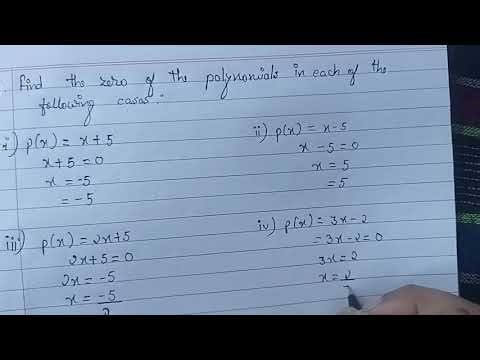 find the zero of the polynomials in each of the
following cases:
i) p(x) = x+5
x+5 = 0
x = -5
= -5
ii) p(x) = x-5
x -5 = 0
x = 5
= 5
iii) p(x) = 2x+5
2x+5 = 0
2x = -5
x = -5
2
iv) p(x) = 3x-2
= 3x-2 = 0
3x = 2
x = 2